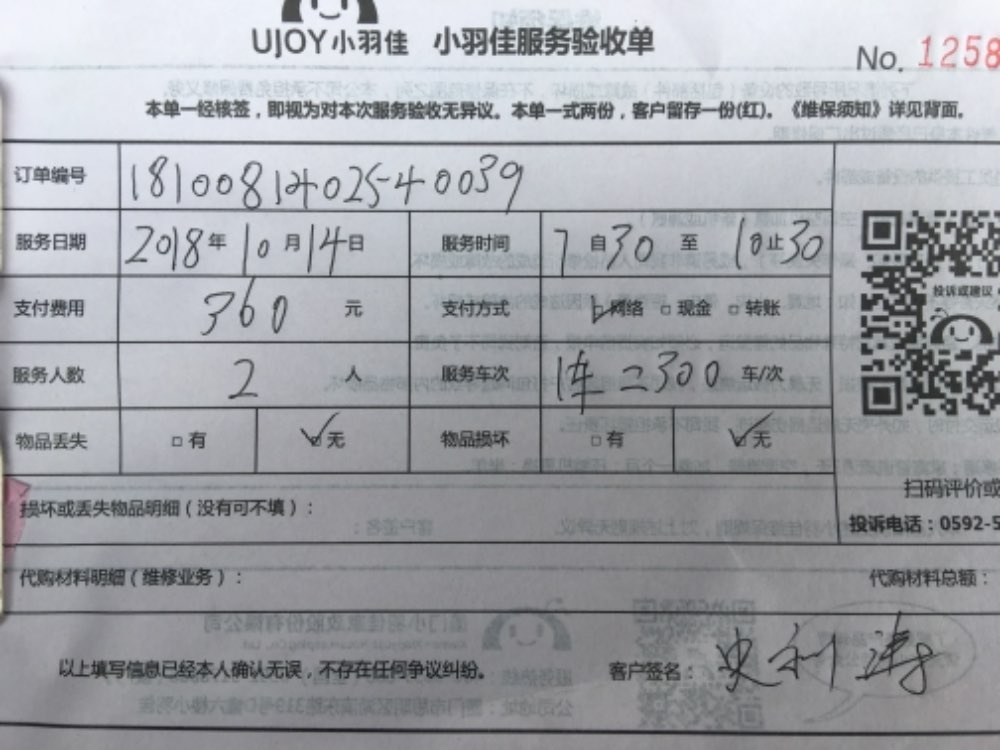 UJOY小羽佳 小羽佳服务验收单
No. 1258
本单一经核签，即视为对本次服务验收无异议。本单一式两份，客户留存一份(红)。《维保须知》详见背面。
订单编号 181008140254 0039
服务日期 2018年10月14日 服务时间 7自30至10止30
支付费用 360 元 支付方式 网络 现金 转账
服务人数 2 人 服务车次 连二300 车/次
物品丢失 有 无 物品损坏 有 无
损坏或丢失物品明细（没有可不填）：
投诉或建议
扫码评价或
投诉电话：0592-5
代购材料明细（维修业务）： 代购材料总额：
以上填写信息已经本人确认无误，不存在任何争议纠纷。 客户签名：史利涛